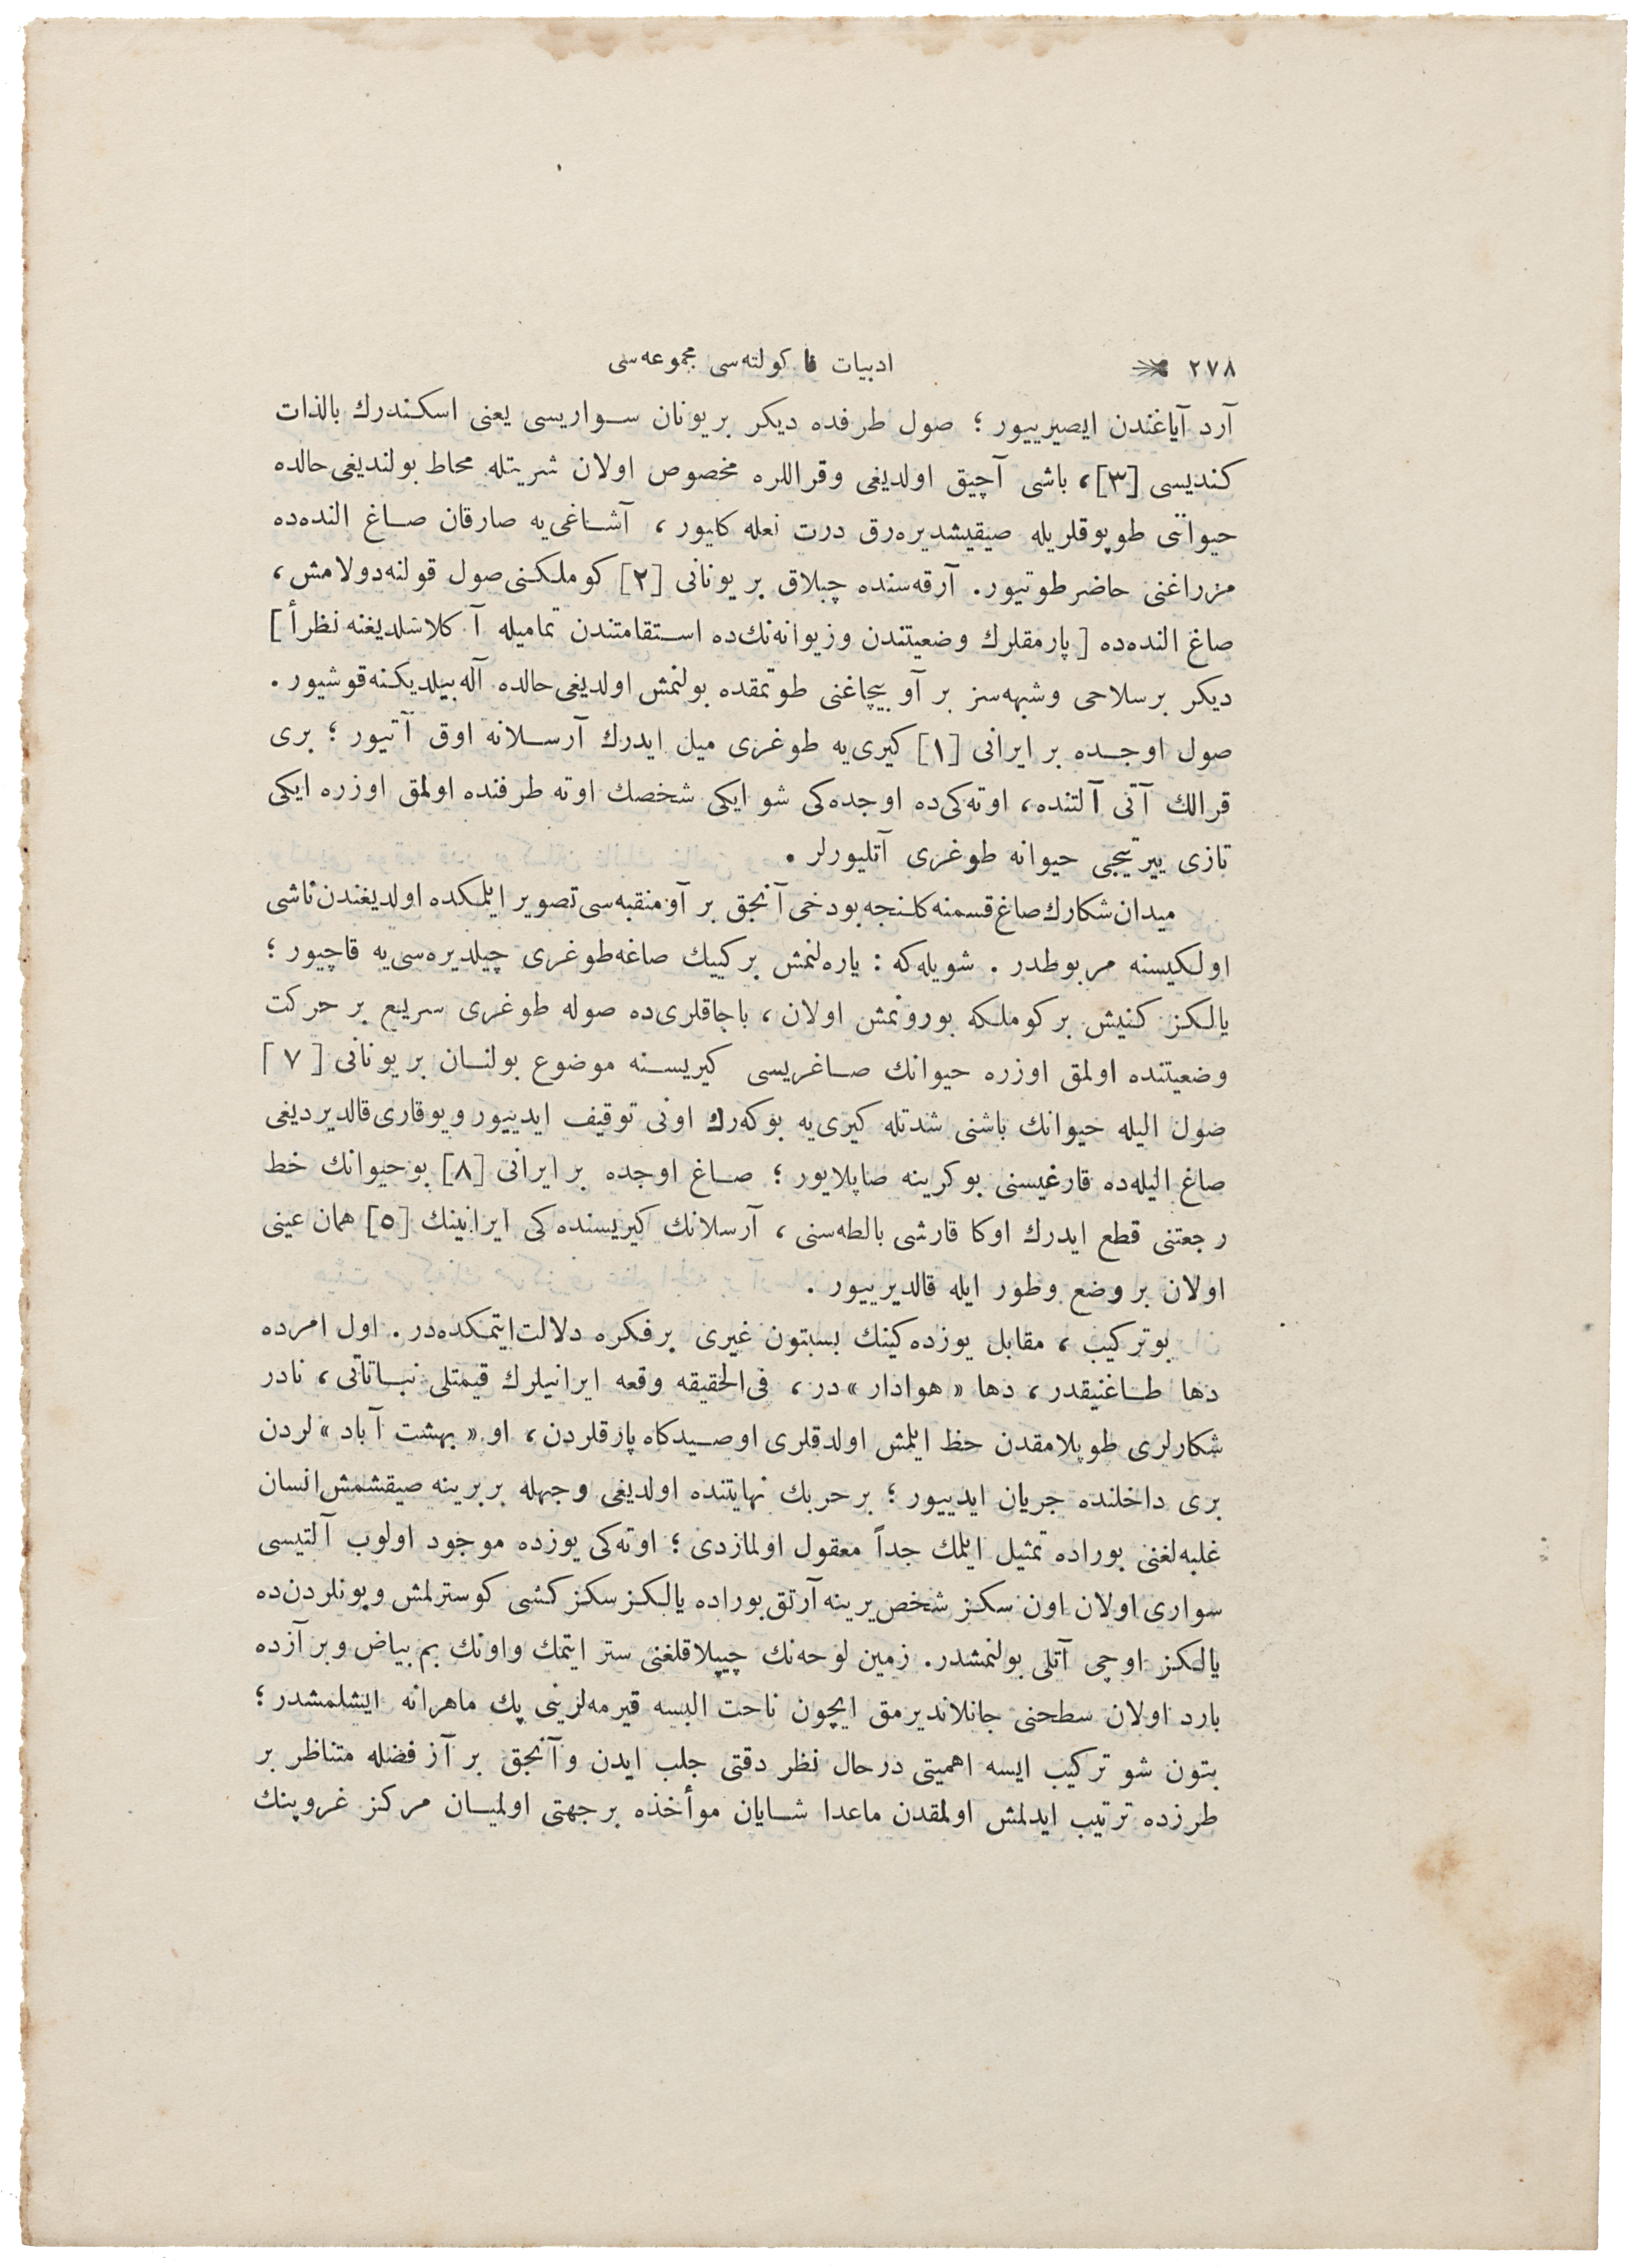 ٢٧٨ ادبيات فاكولته‌سى مجموعه‌سى
آرد آياغندن ايصيرييور ؛ صول طرفده ديكر بر يونان سواريسى يعنى اسكندرك بالذات
كنديسى [٣]، باشى آچيق اولديغى وقراللره مخصوص اولان شريتله محاط بولنديغى حالده
حيوانى طوپوقلريله صيقيشديره‌رق درت نعله كليور ، آشاغى‌يه صارقان صاغ النده‌ده
مزراغنى حاضر طوتيور. آرقه‌سنده چبلاق بر يونانى [٢] كوملكنى صول قولنه دولامش ،
صاغ النده‌ده [پارمقلرك وضعيتندن وزيوانه‌نك‌ده استقامتندن تماميله آكلاشلديغنه نظرأ]
ديكر برسلاحى وشبهه‌سز بر آو بيچاغنى طوتمقده بولنمش اولديغى حالده آله بيلديكنه قوشيور .
صول اوجده بر ايرانى [١] كيرى‌يه طوغرى ميل ايدرك آرسلانه اوق آتيور ؛ برى
قرالك آتى آلتنده، اوته‌كى‌ده اوجده‌كى شو ايكى شخصك اوته طرفنده اولمق اوزره ايكى
تازى ييرتيجى حيوانه طوغرى آتليورلر .
ميدان شكارك صاغ قسمنه كلنجه بودخى آنجق بر آو منقبه‌سى تصوير ايلمكده اولديغندن ناشى
اولكيسنه مربوطدر . شويله‌كه : ياره‌لنمش بر كييك صاغه طوغرى چيلديره‌سى‌يه قاچيور ؛
يالكز كنيش بر كوملكه بورونمش اولان ، باجاقلرى‌ده صوله طوغرى سريع بر حركت
وضعيتنده اولمق اوزره حيوانك صاغريسى كيريسنه موضوع بولنان بر يونانى [٧]
صول اليله حيوانك باشنى شدتله كيرى‌يه بوكه‌رك اونى توقيف ايدييور ويوقارى قالديرديغى
صاغ اليله‌ده قارغيسنى بوكرينه صاپلايور ؛ صاغ اوجده بر ايرانى [٨] بوحيوانك خط
رجعتنى قطع ايدرك اوكا قارشى بالطه‌سنى ، آرسلانك كيريسنده‌كى ايرانينك [٥] همان عينى
اولان بر وضع وطور ايله قالديرييور .
بوتركيب ، مقابل يوزده‌كينك بسبتون غيرى برفكره دلالت ايتمكده‌در. اول امرده
دها طاغنيقدر، دها « هوادار » در ، فى‌الحقيقه وقعه ايرانيلرك قيمتلى نباتاتى ، نادر
شكارلرى طوپلامقدن حظ ايلمش اولدقلرى اوصيدكاه پارقلردن ، او « بهشت آباد » لردن
برى داخلنده جريان ايدييور ؛ بر حربك نهايتنده اولديغى وجهله بربرينه صيقشمش انسان
غلبه‌لغنى بوراده تمثيل ايلمك جداً معقول اولمازدى ؛ اوته‌كى يوزده موجود اولوب آلتيسى
سوارى اولان اون سكز شخص يرينه آرتق بوراده يالكز سكز كشى كوسترلمش وبونلردن‌ده
يالكز اوچى آتلى بولنمشدر. زمين لوحه‌نك چيپلاقلغنى ستر ايتمك واونك بم بياض وبر آزده
بارد اولان سطحنى جانلانديرمق ايچون ناحت البسه قيرمه‌لرينى پك ماهرانه ايشلمشدر ؛
بتون شو تركيب ايسه اهميتى درحال نظر دقتى جلب ايدن وآنجق بر آز فضله متناظر بر
طرزده ترتيب ايدلمش اولمقدن ماعدا شايان موأخذه برجهتى اولميان مركز غروپنك